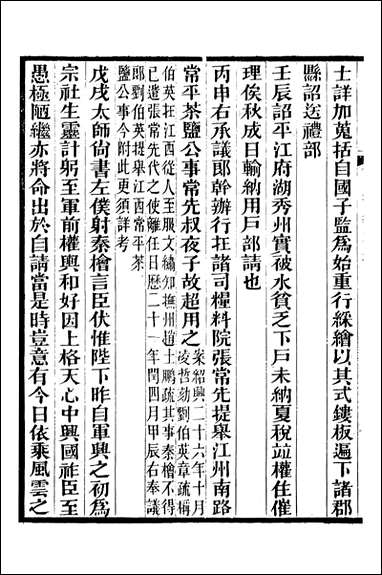 士詳加蒐括自國子監爲始重行綵繪以其式鏤板遍下諸郡
縣詔送禮部
壬辰詔平江府湖秀州實被水貧乏下戶未納夏稅竝權住催
理俟秋成日輸納用戶部請也
丙申右承議郎幹辦行在諸司糧料院張常先提舉江州南路
常平茶鹽公事常先叔夜子故超用之
案紹興二十六年十月
凌哲劾劉伯英章疏稱
伯英在江西從人至服文繡知撫州趙士鵬疏其事秦檜不得
已遣張常先代之使離任日歷二十一年閏四月甲辰右奉議
郎劉伯英提舉江西常平茶
鹽公事今附此更須詳考
戊戌太師尙書左僕射秦檜言臣伏惟陛下昨自軍興之初爲
宗社生靈計躬至軍前權輿和好因上格天心中興國祚臣至
愚極陋繼亦將命出於自請當是時豈意有今日依乘風雲之